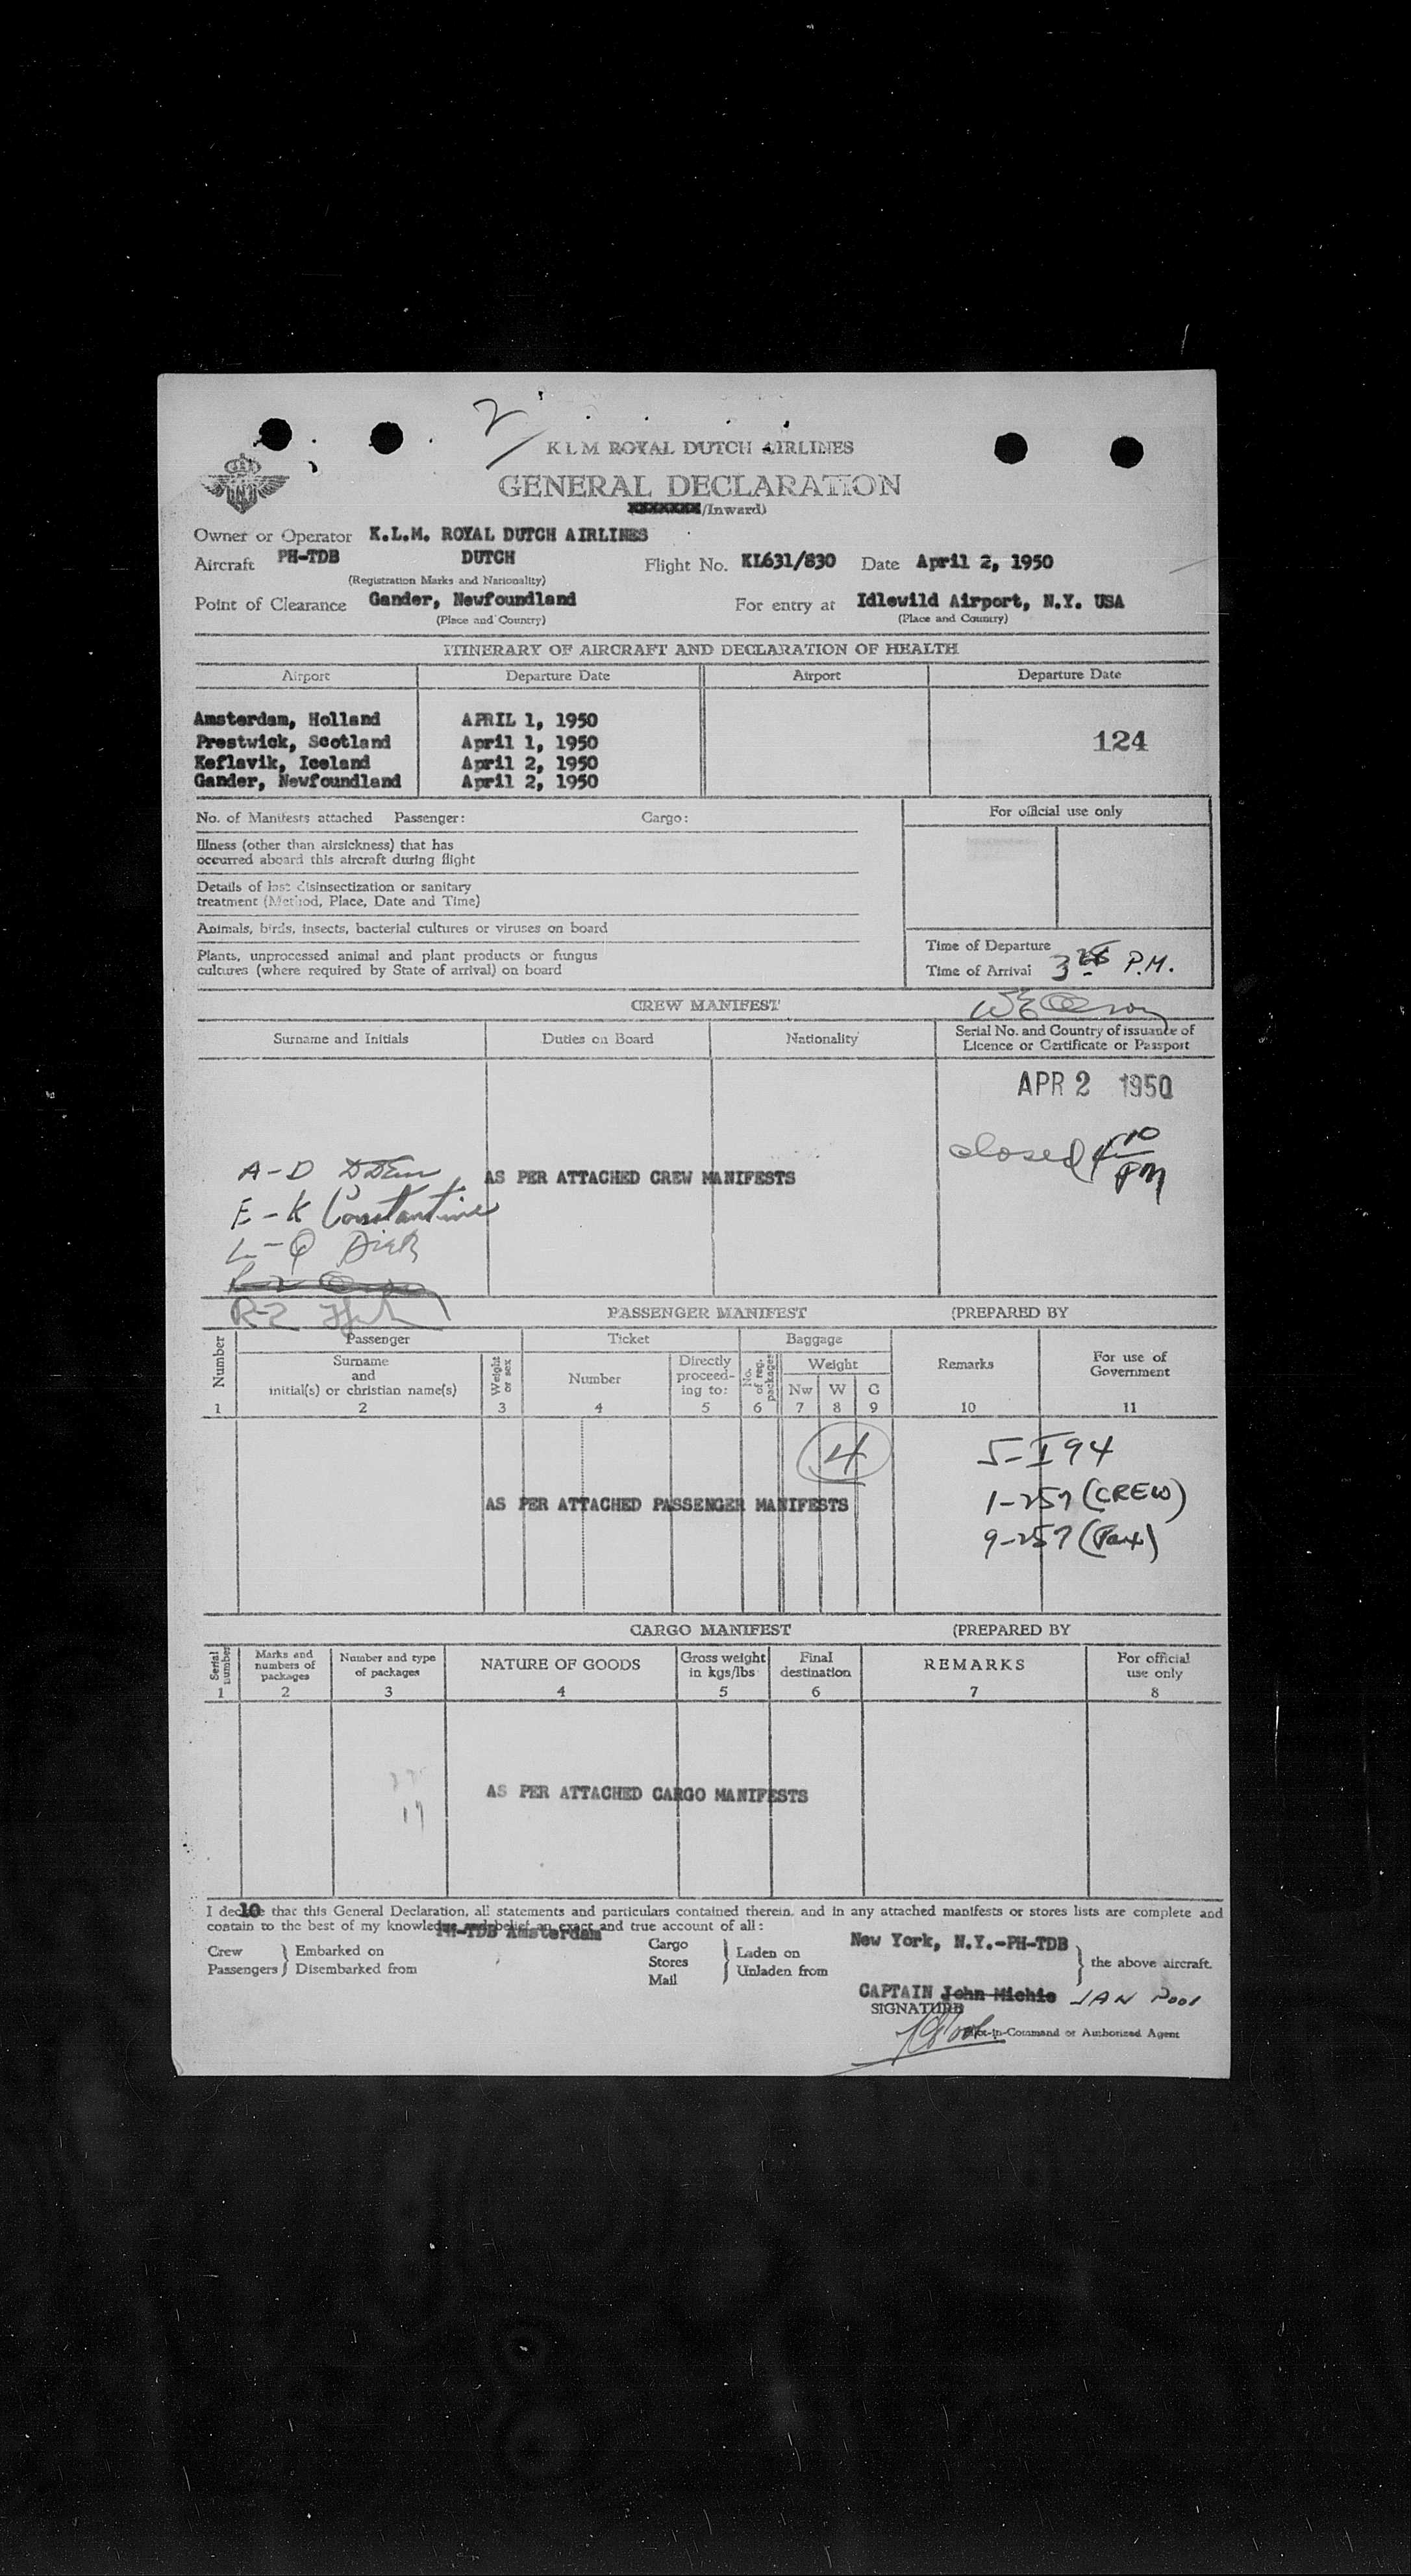 2/
K L M ROYAL DUTCH AIRLINES
GENERAL DECLARATION
/Inward)
Owner or Operator K.L.M. ROYAL DUTCH AIRLINES
Aircraft PH-TDB DUTCH Flight No. KL631/830 Date April 2, 1950
(Registration Marks and Nationality)
Point of Clearance Gander, Newfoundland For entry at Idlewild Airport, N.Y. USA
(Place and Country) (Place and Country)
ITINERARY OF AIRCRAFT AND DECLARATION OF HEALTH
Airport Departure Date Airport Departure Date
Amsterdam, Holland APRIL 1, 1950
Prestwick, Scotland April 1, 1950 124
Keflavik, Iceland April 2, 1950
Gander, Newfoundland April 2, 1950
No. of Manifests attached Passenger: Cargo: For official use only
Illness (other than airsickness) that has
occurred aboard this aircraft during flight
Details of last disinsectization or sanitary
treatment (Method, Place, Date and Time)
Animals, birds, insects, bacterial cultures or viruses on board
Plants, unprocessed animal and plant products or fungus
cultures (where required by State of arrival) on board
Time of Departure
Time of Arrival 3 P.M.
CREW MANIFEST
Surname and Initials Duties on Board Nationality Serial No. and Country of issuance of
Licence or Certificate or Passport
APR 2 1950
closed 4 10 PM
A-D
AS PER ATTACHED CREW MANIFESTS
E-K Constantine
L-Q
R-Z
PASSENGER MANIFEST (PREPARED BY
Number Passenger Ticket Baggage
Surname
and
initial(s) or christian name(s) Weight or sex Number Directly
proceed-
ing to: No. of reg. packages Weight Remarks For use of
Government
Nw W C
1 2 3 4 5 6 7 8 9 10 11
4 5-I94
AS PER ATTACHED PASSENGER MANIFESTS 1-257 (CREW)
9-257 (Pax)
CARGO MANIFEST (PREPARED BY
Serial number Marks and
numbers of
packages Number and type
of packages NATURE OF GOODS Gross weight
in kgs/lbs Final
destination REMARKS For official
use only
1 2 3 4 5 6 7 8
17
AS PER ATTACHED CARGO MANIFESTS
I declare that this General Declaration, all statements and particulars contained therein, and in any attached manifests or stores lists are complete and
contain to the best of my knowledge and belief an exact and true account of all:
10 PH-TDB Amsterdam New York, N.Y.-PH-TDB
Crew } Embarked on Cargo } Laden on } the above aircraft.
Passengers } Disembarked from Stores } Unladen from
Mail
CAPTAIN John Michie JAN Pool
SIGNATURE
Pilot-in-Command or Authorized Agent